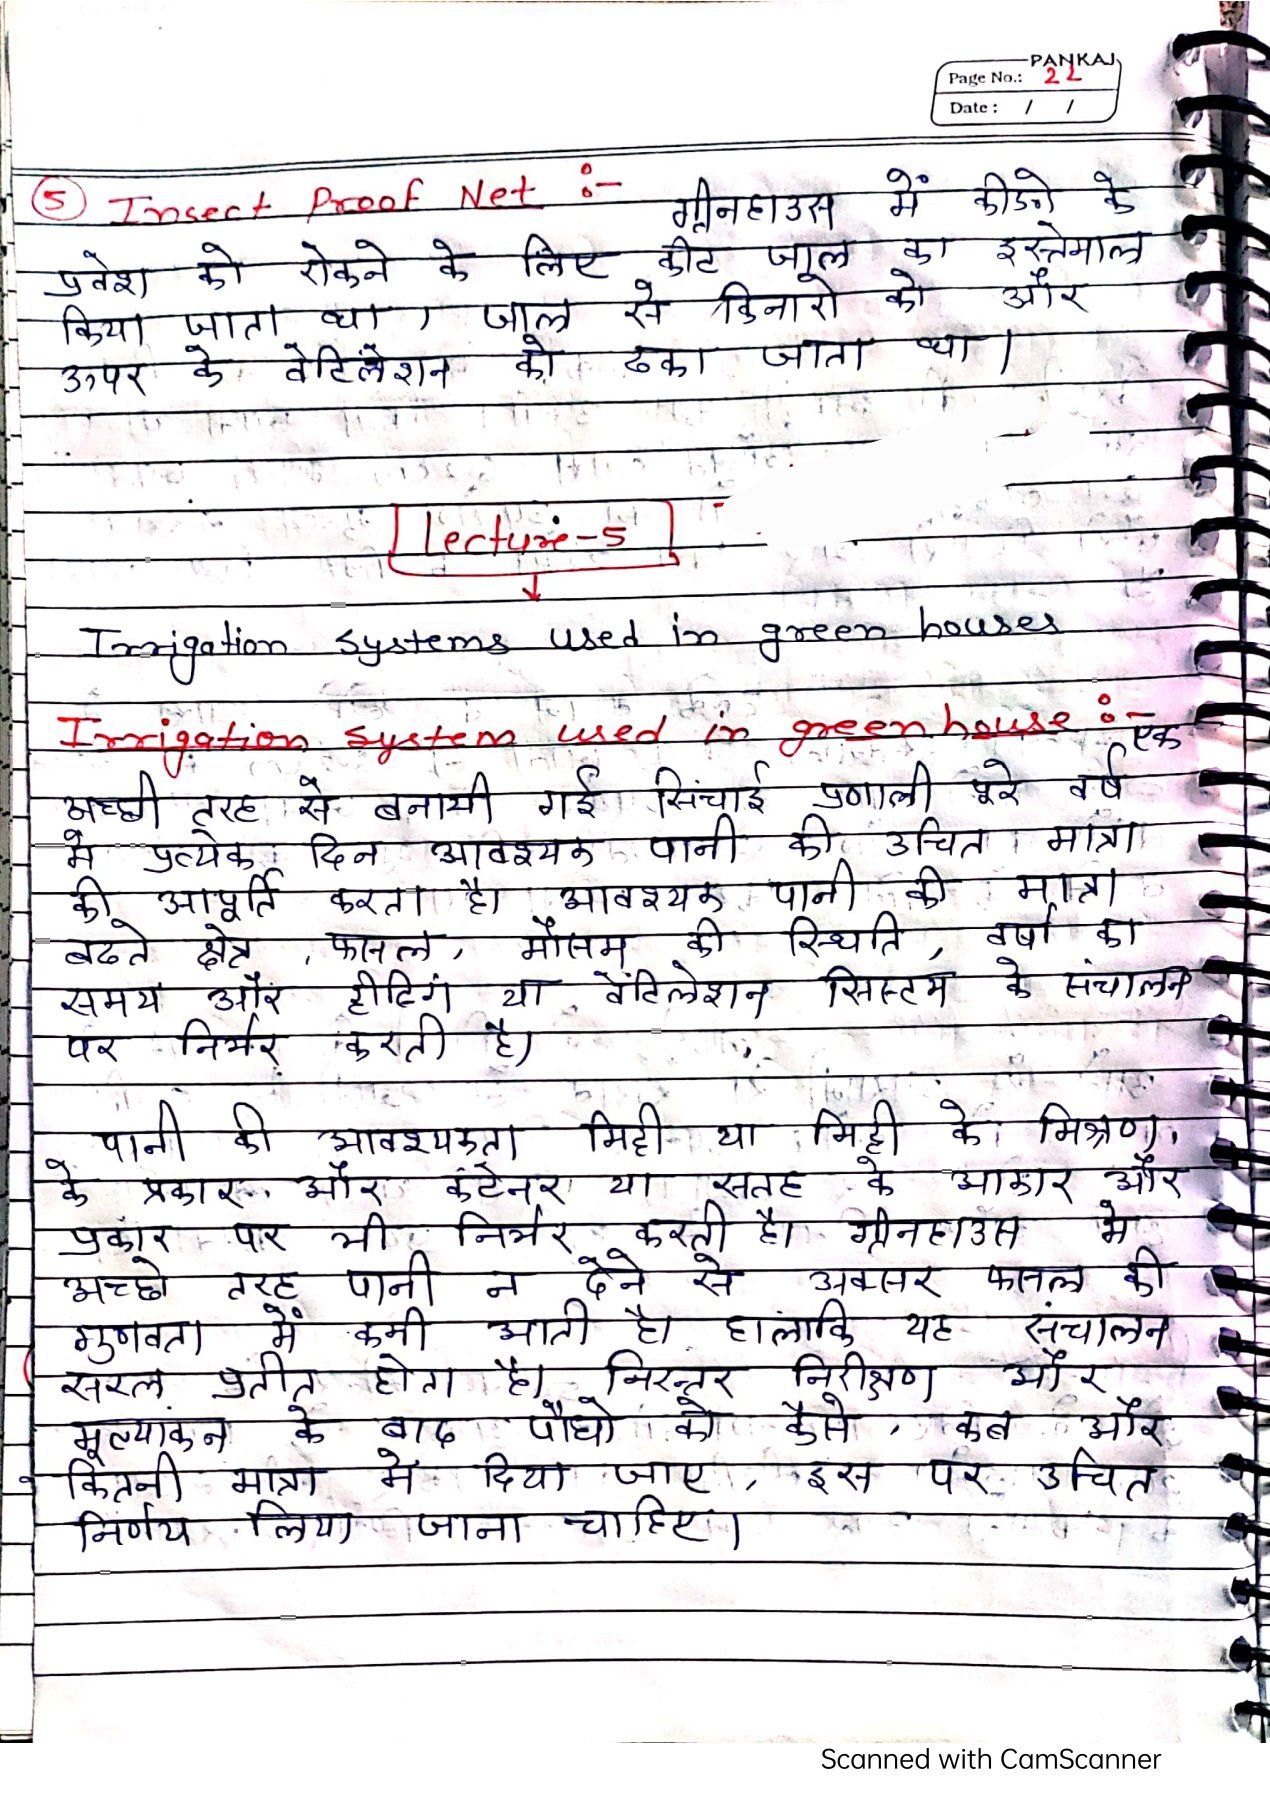 PANKAJ
Page No.: 22
Date : / /
(5) Insect Proof Net :- ग्रीनहाउस में कीडो के
प्रवेश को रोकने के लिए कीट जाल का इस्तेमाल
किया जाता था, जाल से किनारो को और
ऊपर के वेंटिलेशन को ढका जाता था।
Lecture-5
Irrigation systems used in green houses
Irrigation system used in greenhouse :- एक
अच्छी तरह से बनायी गई सिंचाई प्रणाली पूरे वर्ष
मे प्रत्येक दिन आवश्यक पानी की उचित मात्रा
की आपूर्ति करता है। आवश्यक पानी की मात्रा
बढते क्षेत्र, फसल, मौसम की स्थिति, वर्षा का
समय और हीटिंग या वेंटिलेशन सिस्टम के संचालन
पर निर्भर करती है।
पानी की आवश्यकता मिट्टी या मिट्टी के मिश्रण
के प्रकार और कंटेनर या सतह के आकार और
प्रकार पर भी निर्भर करती है। ग्रीनहाउस मे
अच्छे तरह पानी न देने से अक्सर फसल की
गुणवता में कमी आती है। हालांकि यह संचालन
सरल प्रतीत होता है। निरन्तर निरीक्षण और
मूल्यांकन के बाद पौधो को कैसे, कब और
कितनी मात्रा मे दिया जाए, इस पर उचित
निर्णय लिया जाना चाहिए।
Scanned with CamScanner